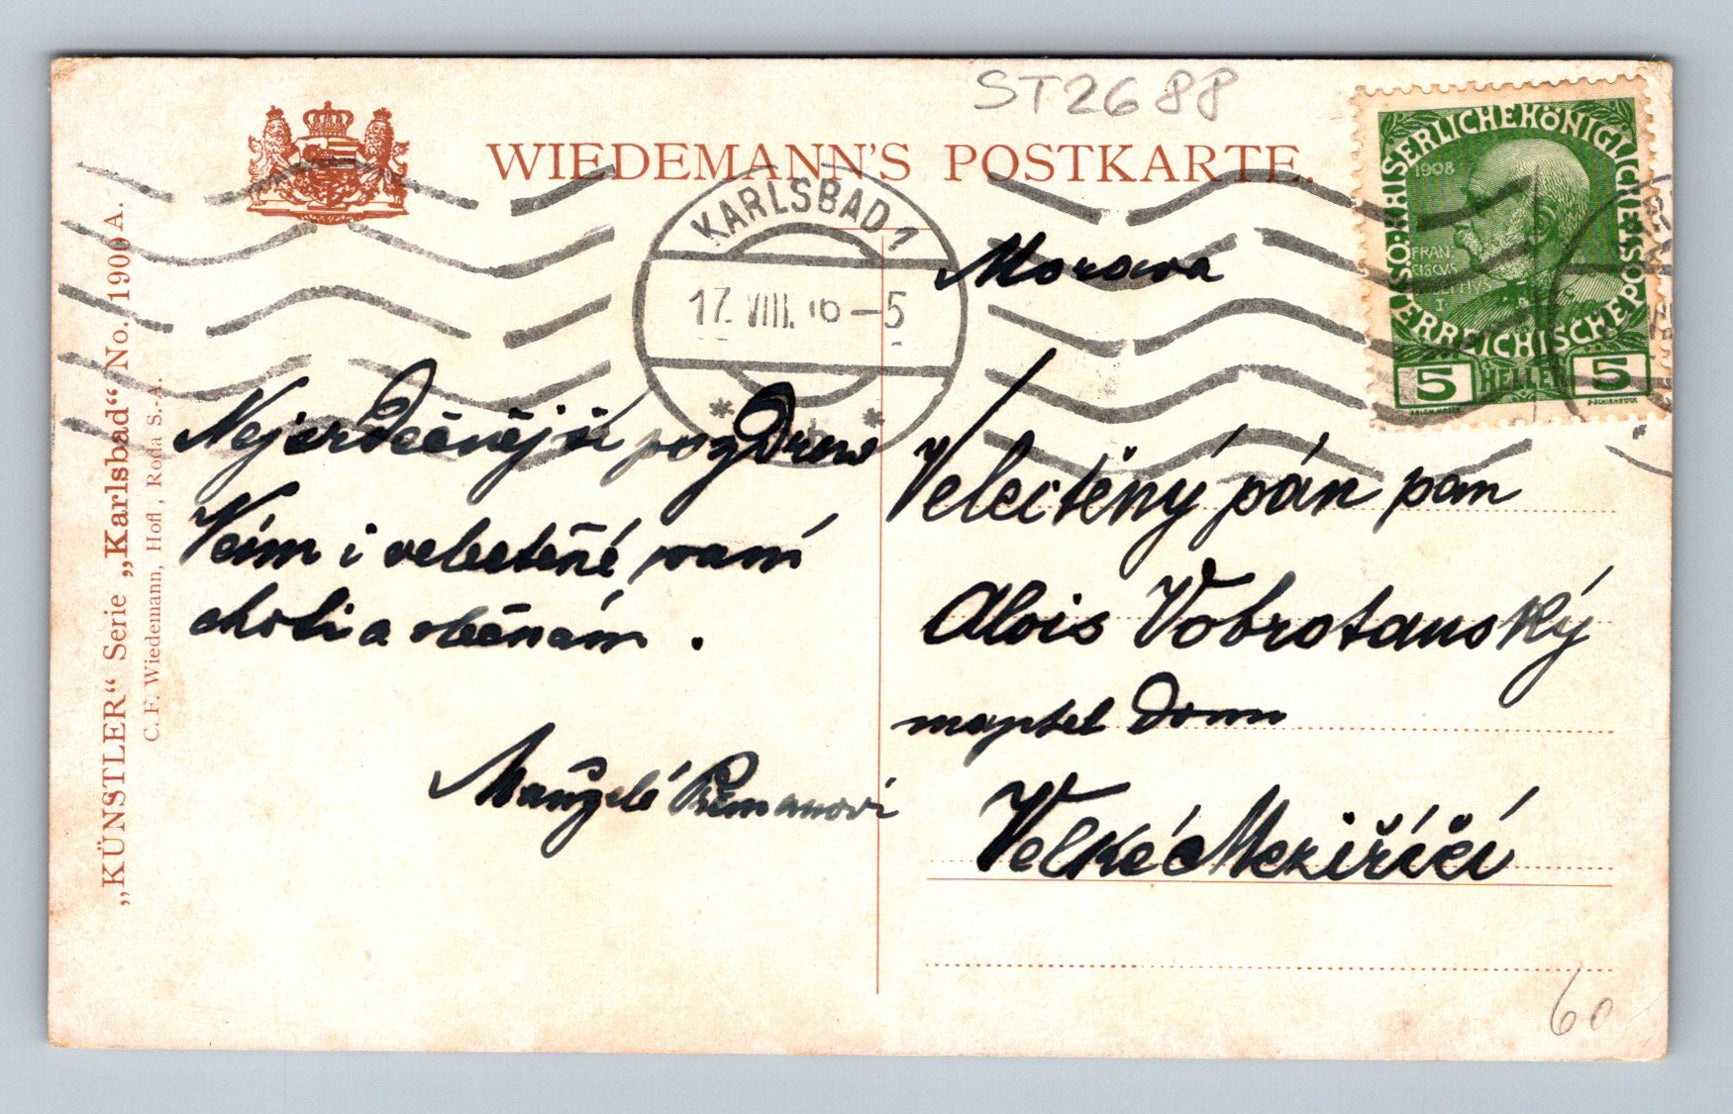 ST2688
WIEDEMANN'S POSTKARTE.
KAISERLICHE KÖNIGLICHE ÖSTERREICHISCHE POST
1908
FRAN
CISCUS
5 HELLER 5
KARLSBAD 1
17. VIII. 16 - 5
Morava
Nejsrdečnější pozdrav
Vám i velectěné paní
choti a slečnám.
Manželé
Velectěný pán pan
Alois Vobrotanský
majitel domu
Velké Meziříčí
„KÜNSTLER“ Serie „Karlsbad“ No. 1900 A.
C. F. Wiedemann, Hofl, Roda S.-A.
60